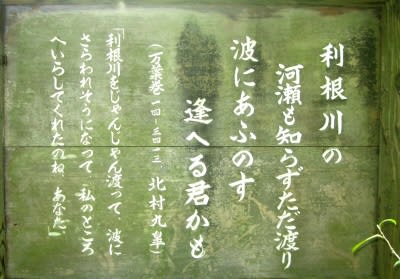 利根川の
河瀬も知らずただ渡り
波にあふのす
逢へる君かも
（万葉巻一四、三四一三、北村九皐）
「利根川をじゃんじゃん渡って、波に
さらわれそうになって、私のところ
へいらしてくれたのね、あなた」